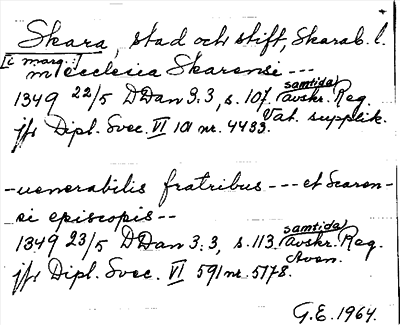 Skara, stad och stift, Skarab. l.
[i marg.:]
m ecclecia Skarensi ---
1349 22/5 DDan 3.3, s. 107. samtida avskr. Reg.
Vat. supplik.
jfr Dipl. Svec. VI 101 nr. 4433.
-uenerabilis fratribus --- et Scaren-
si episcopis --
1349 23/5 DDan 3:3, s. 113. samtida avskr. Reg.
Aven.
jfr Dipl. Svec. VI 591 nr. 5178.
G.E. 1964.